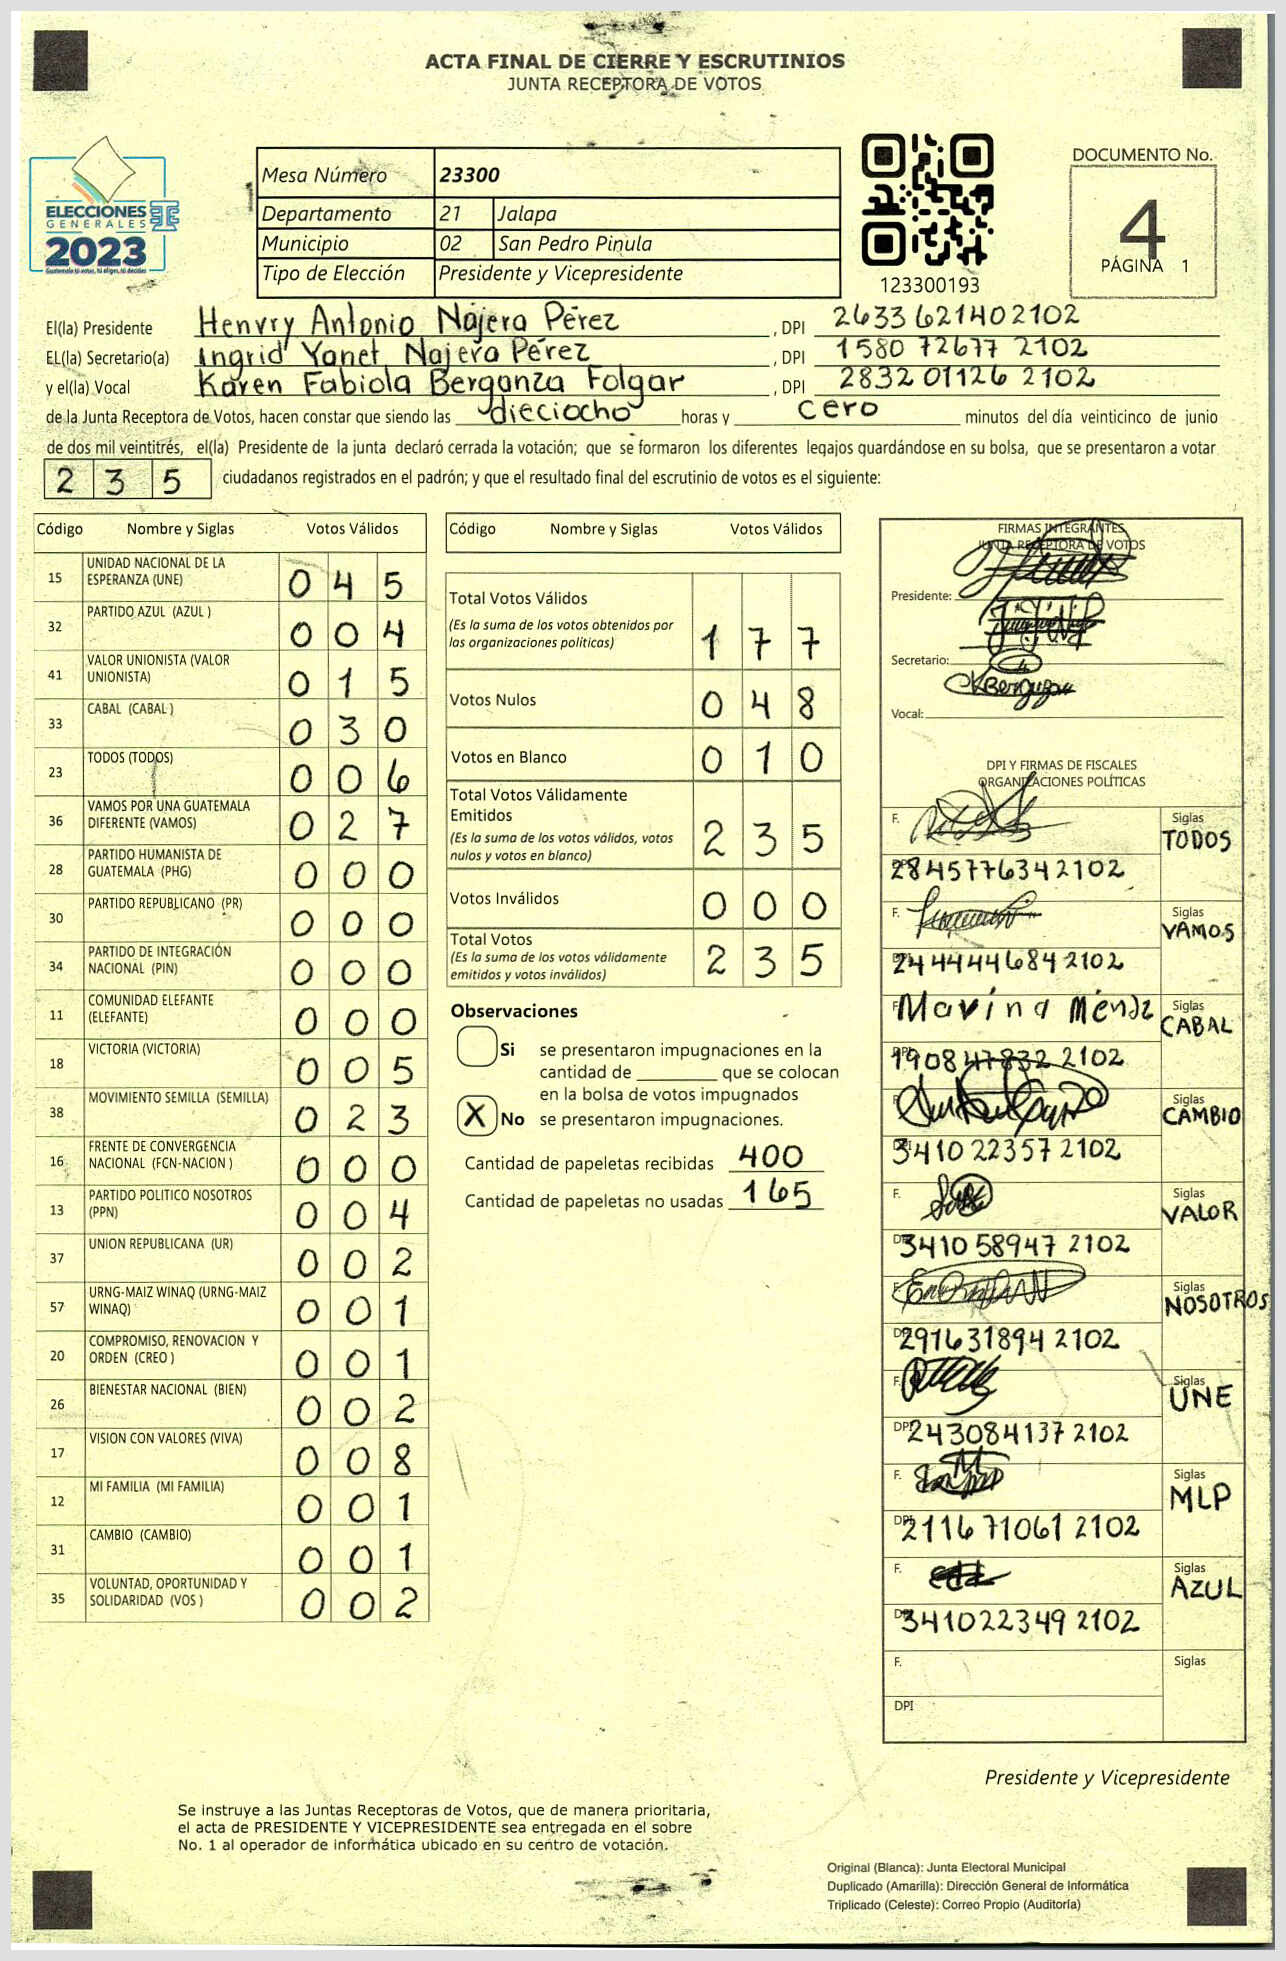 ACTA FINAL DE CIERRE Y ESCRUTINIOS
JUNTA RECEPTORA DE VOTOS
ELECCIONES
GENERALES
2023
Guatemala tú votas, tú eliges, tú decides
Mesa Número 23300
Departamento 21 Jalapa
Municipio 02 San Pedro Pinula
Tipo de Elección Presidente y Vicepresidente
123300193
DOCUMENTO No.
4
PÁGINA 1
El(la) Presidente Henvry Antonio Nájera Pérez, DPI 2633 62140 2102
EL(la) Secretario(a) Ingrid Yanet Najera Pérez, DPI 1580 72677 2102
y el(la) Vocal Karen Fabiola Berganza Folgar, DPI 2832 01126 2102
de la Junta Receptora de Votos, hacen constar que siendo las dieciocho horas y cero minutos del día veinticinco de junio
de dos mil veintitrés, el(la) Presidente de la junta declaró cerrada la votación; que se formaron los diferentes legajos guardándose en su bolsa, que se presentaron a votar
2 3 5 ciudadanos registrados en el padrón; y que el resultado final del escrutinio de votos es el siguiente:
Código Nombre y Siglas Votos Válidos
15 UNIDAD NACIONAL DE LA ESPERANZA (UNE) 0 4 5
32 PARTIDO AZUL (AZUL ) 0 0 4
41 VALOR UNIONISTA (VALOR UNIONISTA) 0 1 5
33 CABAL (CABAL ) 0 3 0
23 TODOS (TODOS) 0 0 6
36 VAMOS POR UNA GUATEMALA DIFERENTE (VAMOS) 0 2 7
28 PARTIDO HUMANISTA DE GUATEMALA (PHG) 0 0 0
30 PARTIDO REPUBLICANO (PR) 0 0 0
34 PARTIDO DE INTEGRACIÓN NACIONAL (PIN) 0 0 0
11 COMUNIDAD ELEFANTE (ELEFANTE) 0 0 0
18 VICTORIA (VICTORIA) 0 0 5
38 MOVIMIENTO SEMILLA (SEMILLA) 0 2 3
16 FRENTE DE CONVERGENCIA NACIONAL (FCN-NACION ) 0 0 0
13 PARTIDO POLITICO NOSOTROS (PPN) 0 0 4
37 UNION REPUBLICANA (UR) 0 0 2
57 URNG-MAIZ WINAQ (URNG-MAIZ WINAQ) 0 0 1
20 COMPROMISO, RENOVACION Y ORDEN (CREO ) 0 0 1
26 BIENESTAR NACIONAL (BIEN) 0 0 2
17 VISION CON VALORES (VIVA) 0 0 8
12 MI FAMILIA (MI FAMILIA) 0 0 1
31 CAMBIO (CAMBIO) 0 0 1
35 VOLUNTAD, OPORTUNIDAD Y SOLIDARIDAD (VOS ) 0 0 2
Código Nombre y Siglas Votos Válidos
Total Votos Válidos
(Es la suma de los votos obtenidos por
las organizaciones políticas) 1 7 7
Votos Nulos 0 4 8
Votos en Blanco 0 1 0
Total Votos Válidamente
Emitidos
(Es la suma de los votos válidos, votos
nulos y votos en blanco) 2 3 5
Votos Inválidos 0 0 0
Total Votos
(Es la suma de los votos válidamente
emitidos y votos inválidos) 2 3 5
Observaciones
Si se presentaron impugnaciones en la
cantidad de ________ que se colocan
en la bolsa de votos impugnados
X No se presentaron impugnaciones.
Cantidad de papeletas recibidas 400
Cantidad de papeletas no usadas 165
FIRMAS INTEGRANTES
JUNTA RECEPTORA DE VOTOS
Presidente:
Secretario:
Vocal:
DPI Y FIRMAS DE FISCALES
ORGANIZACIONES POLÍTICAS
F. Siglas TODOS
DPI 2845776342102
F. Siglas VAMOS
DPI 2444446842102
F. Marina Méndz Siglas CABAL
DPI 190847832 2102
F. Siglas CAMBIO
DPI 3410 22357 2102
F. Siglas VALOR
DPI 3410 58947 2102
F. Siglas NOSOTROS
DPI 291631894 2102
F. Siglas UNE
DPI 243084137 2102
F. Siglas MLP
DPI 2116 71061 2102
F. Siglas AZUL
DPI 341022349 2102
F. Siglas
DPI
Presidente y Vicepresidente
Se instruye a las Juntas Receptoras de Votos, que de manera prioritaria,
el acta de PRESIDENTE Y VICEPRESIDENTE sea entregada en el sobre
No. 1 al operador de informática ubicado en su centro de votación.
Original (Blanca): Junta Electoral Municipal
Duplicado (Amarilla): Dirección General de Informática
Triplicado (Celeste): Correo Propio (Auditoría)